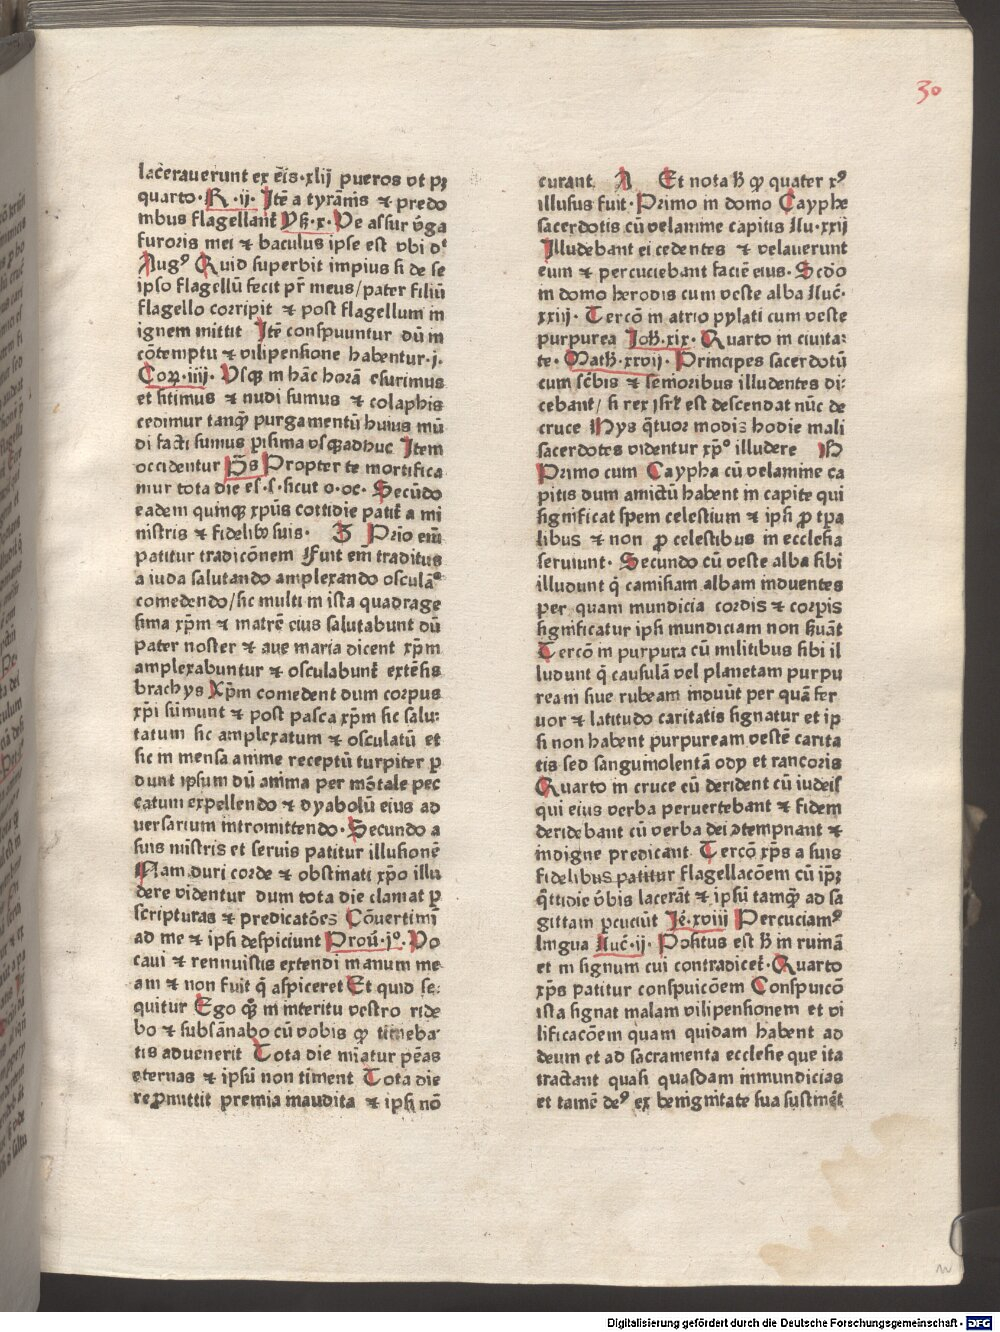 30
lac̄erauerunt ex eīs·xlij pueros vt pꝫ
quarto·R·ij· Itē a tyrānis ⁊ predo
nibus flagellant̄ Yſ·x·Ve aſſur v̄ga
furoris mei ⁊ baculus ipſe eſt vbi dꝰ
Augꝰ Quid ſuperbit impius ſi de ſe
ipſo flagellū fecit pr̄ meus/pater filiū
flagello corripit ⁊ poſt flagellum in
ignem mittit Itē conſpuuntur dū in
cōtemptu ⁊ vilipenſione habentur·j·
Coꝝ·iiij· Vſqꝫ in hāc horā eſurimus
et ſitimus ⁊ nudi ſumus ⁊ colaphis
cedimur tanqꝫ purgamentū huius mū
di facti ſumus ꝑiſima vſqꝫadhuc Item
occidentur Ps̄ Propter te mortifica
mur tota die eſ·ſ·ſicut o·oc· Secūdo
eadem quinqꝫ xpūs cottidie patit̄ a mi
niſtris ⁊ fidelibꝰ ſuis· B Prīo eīm
patitur tradicōnem Fuit eīm traditus
a iuda ſalutando amplexando oſculā°
comedendo/ſic multi in iſta quadrage
ſima xp̄m ⁊ matrē eius ſalutabunt dū
pater noſter ⁊ aue maria dicent xp̄m
amplexabuntur ⁊ oſculabunt̄ extēſis
brachys Xp̄m comedent dum corpus
xp̄i ſūmunt ⁊ poſt paſca xp̄m ſic ſalu:
tatum ſic amplexatum ⁊ oſculatū et
ſic in menſa anime receptū turpiter ꝑ
dunt ipſum dū anima per mōtale pec
catum expellendo ⁊ dyabolū eius ad
uerſarium intromittendo·Secundo a
ſuis miſtris et ſeruis patitur illuſionē
Nam duri corde ⁊ obſtinati xp̄o illu
dere videntur dum tota die clamat ꝑ
ſcripturas ⁊ predicatōes Cōuertimī
ad me ⁊ ipſi deſpiciunt Prou·j°·Vo
caui ⁊ rennuiſtis extendi manum me
am ⁊ non fuit q̄ aſpiceret Et quid ſe:
quitur Ego qꝫ in interitu veſtro ride
bo ⁊ ſubſānabo cū vobis ꝙ timeba
tis aduenerit Tota die miātur pēas
eternas ⁊ ipſū non timent Tota die
reꝓmittit premia inaudita ⁊ ipſi nō
curant A Et nota ꝙ quater xꝰ
illuſus fuit·Primo in domo Cayphe
ſacerdotis cū velamine capitis Lu·xxij
Illudebant ei cedentes ⁊ velauerunt
eum ⁊ percuciebant faciē eius·Scd̄o
in domo herodis cum veſte alba Luc̄·
xxiij· Tercō in atrio pylati cum veſte
purpurea Joh̄·xix·Quarto in ciuita:
te·Math̄·xxvij·Principes ſacerdotū
cum ſcībis ⁊ ſenioribus illudentes di:
cebant/ſi rex iſrl̄ eſt deſcendat nūc de
cruce Hys q̄tuor modis hodie mali
ſacerdotes videntur xp̄° illudere
Primo cum Caypha cū velamine ca
pitis dum amictū habent in capite qui
ſignificat ſpem celeſtium ⁊ ipſi ꝓ tp̄a
libus ⁊ non ꝓ celeſtibus in eccleſia
ſeruiunt·Secundo cū veſte alba ſibi
illudunt q̄ camiſiam albam induentes
per quam mundicia cordis ⁊ corpīs
ſignificatur ipſi mundiciam non ſeruāt
Tercō in purpura cū militibus ſibi il
ludunt q̄ cauſulā vel planetam purpu
ream ſiue rubeam induūt per quā fer
uor ⁊ latitudo caritatis ſignatur et ip
ſi non habent purpuream veſtē carita
tis ſed ſanguinolentā ody et rancoris
Quarto in cruce cū derident cū iudeiſ
qui eius verba peruertebant ⁊ fidem
deridebant cū verba dei ꝯtempnant ⁊
indigne predicant Tercō xp̄s a ſuis
fidelibus patitur flagellacōem cū ip̄ꝫ
q̄ttidie v̄bis lacerāt ⁊ ipſū tamqꝫ ad ſa
gittam ꝑcuciūt Je·xviij Percuciamꝰ
lingua Luc̄·ij·Poſitus eſt in ruinā
et in ſignum cui contradicet̄·Quarto
xp̄s patitur conſpuicōem Conſpuicō
iſta ſignat malam vilipenſionem et vi
lificacōem quam quidam habent ad
deum et ad ſacramenta eccleſie que ita
tractant quaſi quaſdam inmundicias
et tamē deꝰ ex benignitate ſua ſuſtinēt
Digitalisierung gefördert durch die Deutsche Forschungsgemeinschaft - DFG